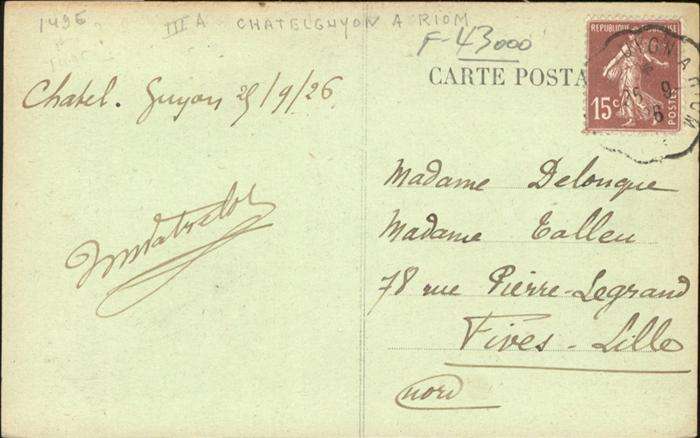 1495 III A CHATELGUYON A RIOM
F-43000
CARTE POSTA
REPUBLIQUE FRANCAISE
15c
POSTES
GUYON A RIOM
25 9
Chatel. Guyon 25/9/26
Madame Delonque
Madame Talleu
78 rue Pierre-Legrand
Fives-Lille
Nord